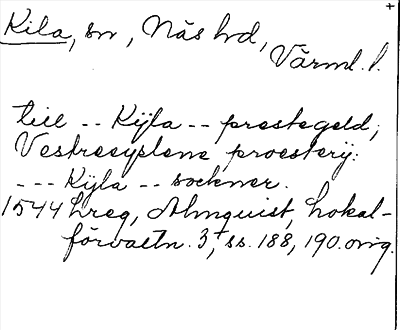 +
Kila, sn, Näs hd,
Värml. l.
till -- Kijla -- prestegeld;
Vestresyslene proesterij:
--- Kijla -- sockner.
1544 hreg, Almquist, Lokal-
förvaltn. 3, ss. 188, 190. orig.